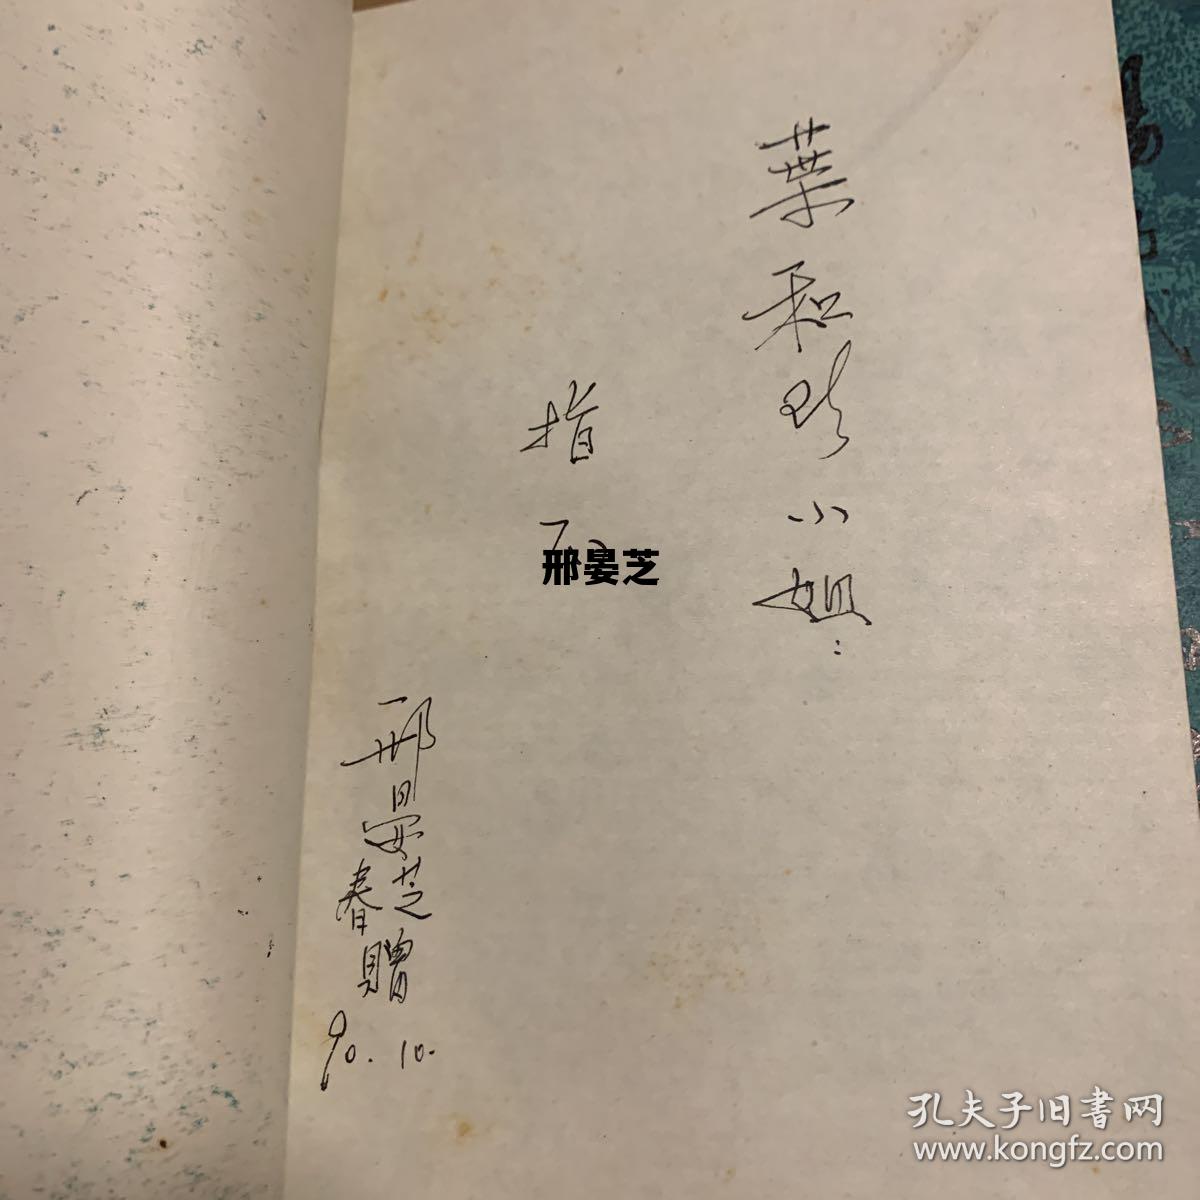 葉和珍小姐:
指正
邢晏芝
邢晏芝
春贈
90.10.
孔夫子旧书网
www.kongfz.com